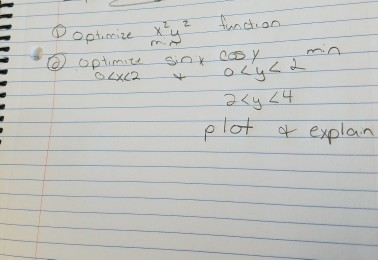 ① Optimize x² y² function
min
② optimize sin x cos y min
0<x<2 + 0<y<2
2<y<4
plot & explain